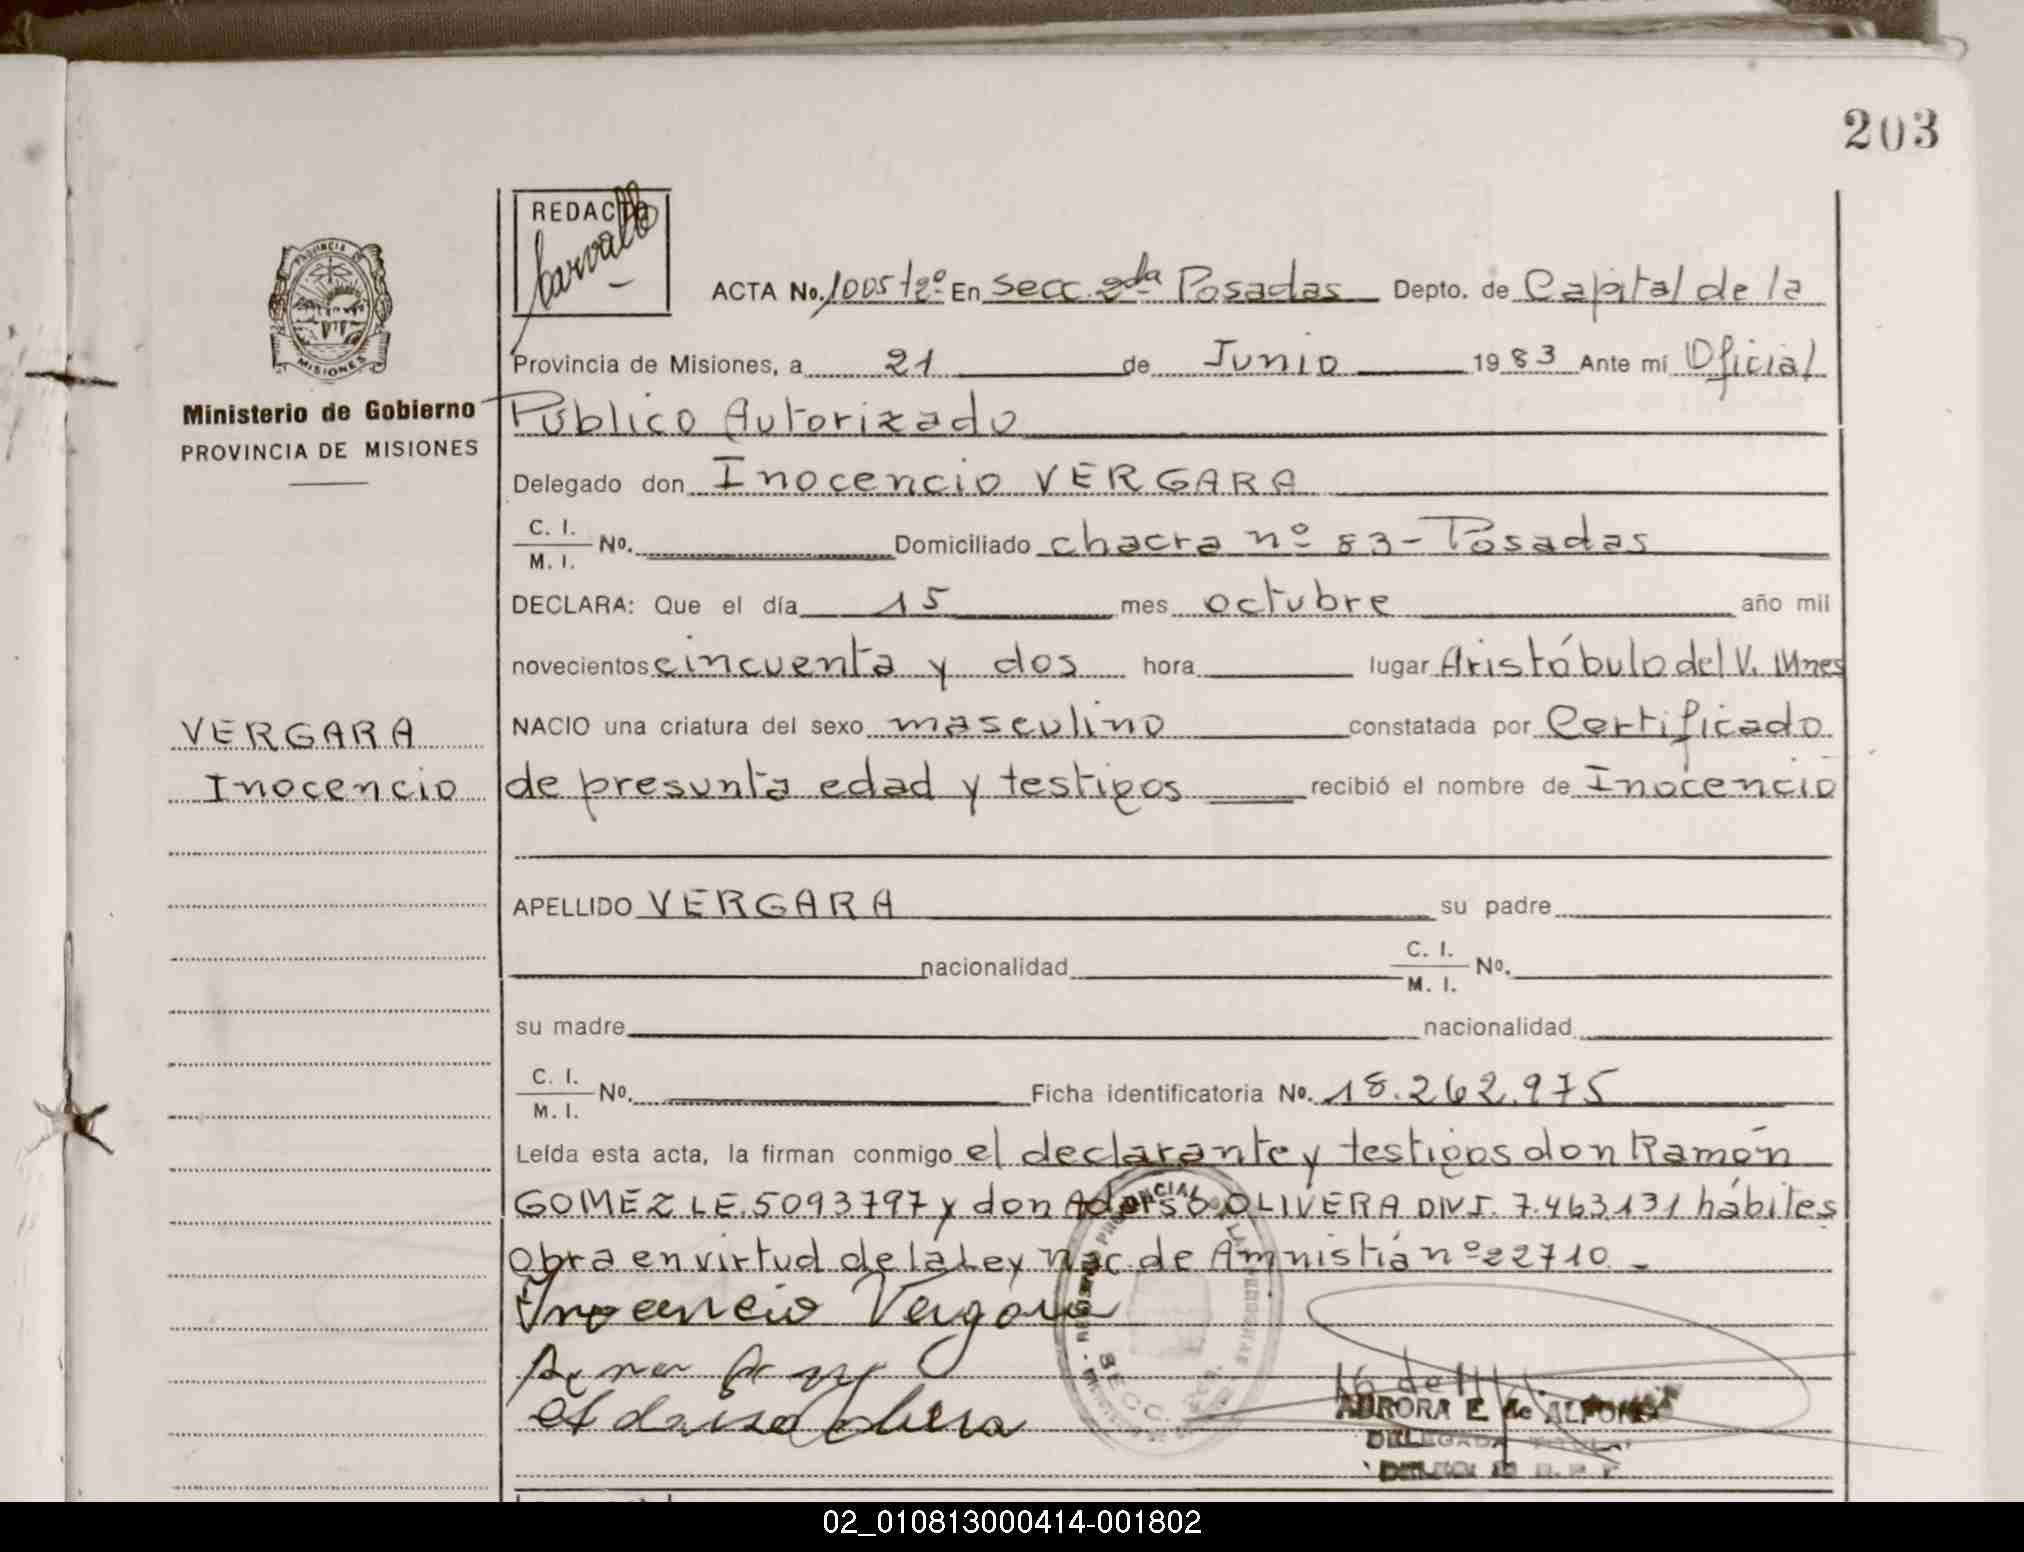 203
REDACTO
Carvallo
ACTA No. 1005 t 2º En Secc. 2da Posadas Depto. de Capital de la
Provincia de Misiones, a 21 de Junio 1983 Ante mí Oficial
Público Autorizado
PROVINCIA DE
MISIONES
Ministerio de Gobierno
PROVINCIA DE MISIONES
Delegado don Inocencio VERGARA
C. I.
M. I. No. Domiciliado chacra nº 83 - Posadas
DECLARA: Que el día 15 mes octubre año mil
novecientos cincuenta y dos hora lugar Aristóbulo del V. Mnes
VERGARA
Inocencio
NACIO una criatura del sexo masculino constatada por Certificado
de presunta edad y testigos recibió el nombre de Inocencio
APELLIDO VERGARA su padre
nacionalidad C. I.
M. I. No.
su madre nacionalidad
C. I.
M. I. No. Ficha identificatoria No. 18.262.975
Leída esta acta, la firman conmigo el declarante y testigos don Ramón
GOMEZ LE. 5093797 y don OLIVERA DNI. 7.463.131 hábiles
obra en virtud de la Ley Nac. de Amnistía nº 22710 -
Inocencio Vergara
AURORA E. de ALFONSO
DELEGADA
SECC.
02_010813000414-001802